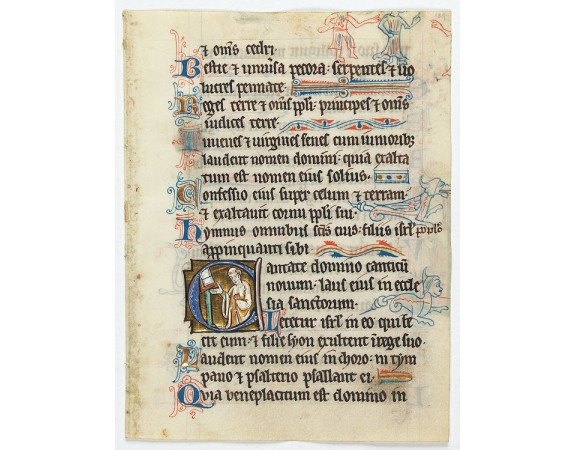 ⁊ om̄s cedri.
Bestie ⁊ uniu̾sa pecora: serpentes ⁊ uo
lucres pennate.
Reges terre ⁊ om̄s ppl̄i: principes ⁊ om̄s
iudices terre.
Iuuenes ⁊ uirgines senes cum iunioribꝫ
laudent nomen domini: quia exalta
tum est nomen eius solius.
Confessio eius super celum ⁊ terram:
⁊ exaltauit cornu ppl̄i sui.
Hymnus omnibus sc̄is eius: filiis isrl̄ populo
appinquanti sibi.
Cantate domino canticū
nouum: laus eius in eccle
sia sanctorum.
Letetur isrl̄ in eo qui fe
cit eum: ⁊ filie syon exultent ī rege suo.
Laudent nomen eius in choro: in tym
pano ⁊ psalterio psallant ei.
Quia beneplacitum est domino in